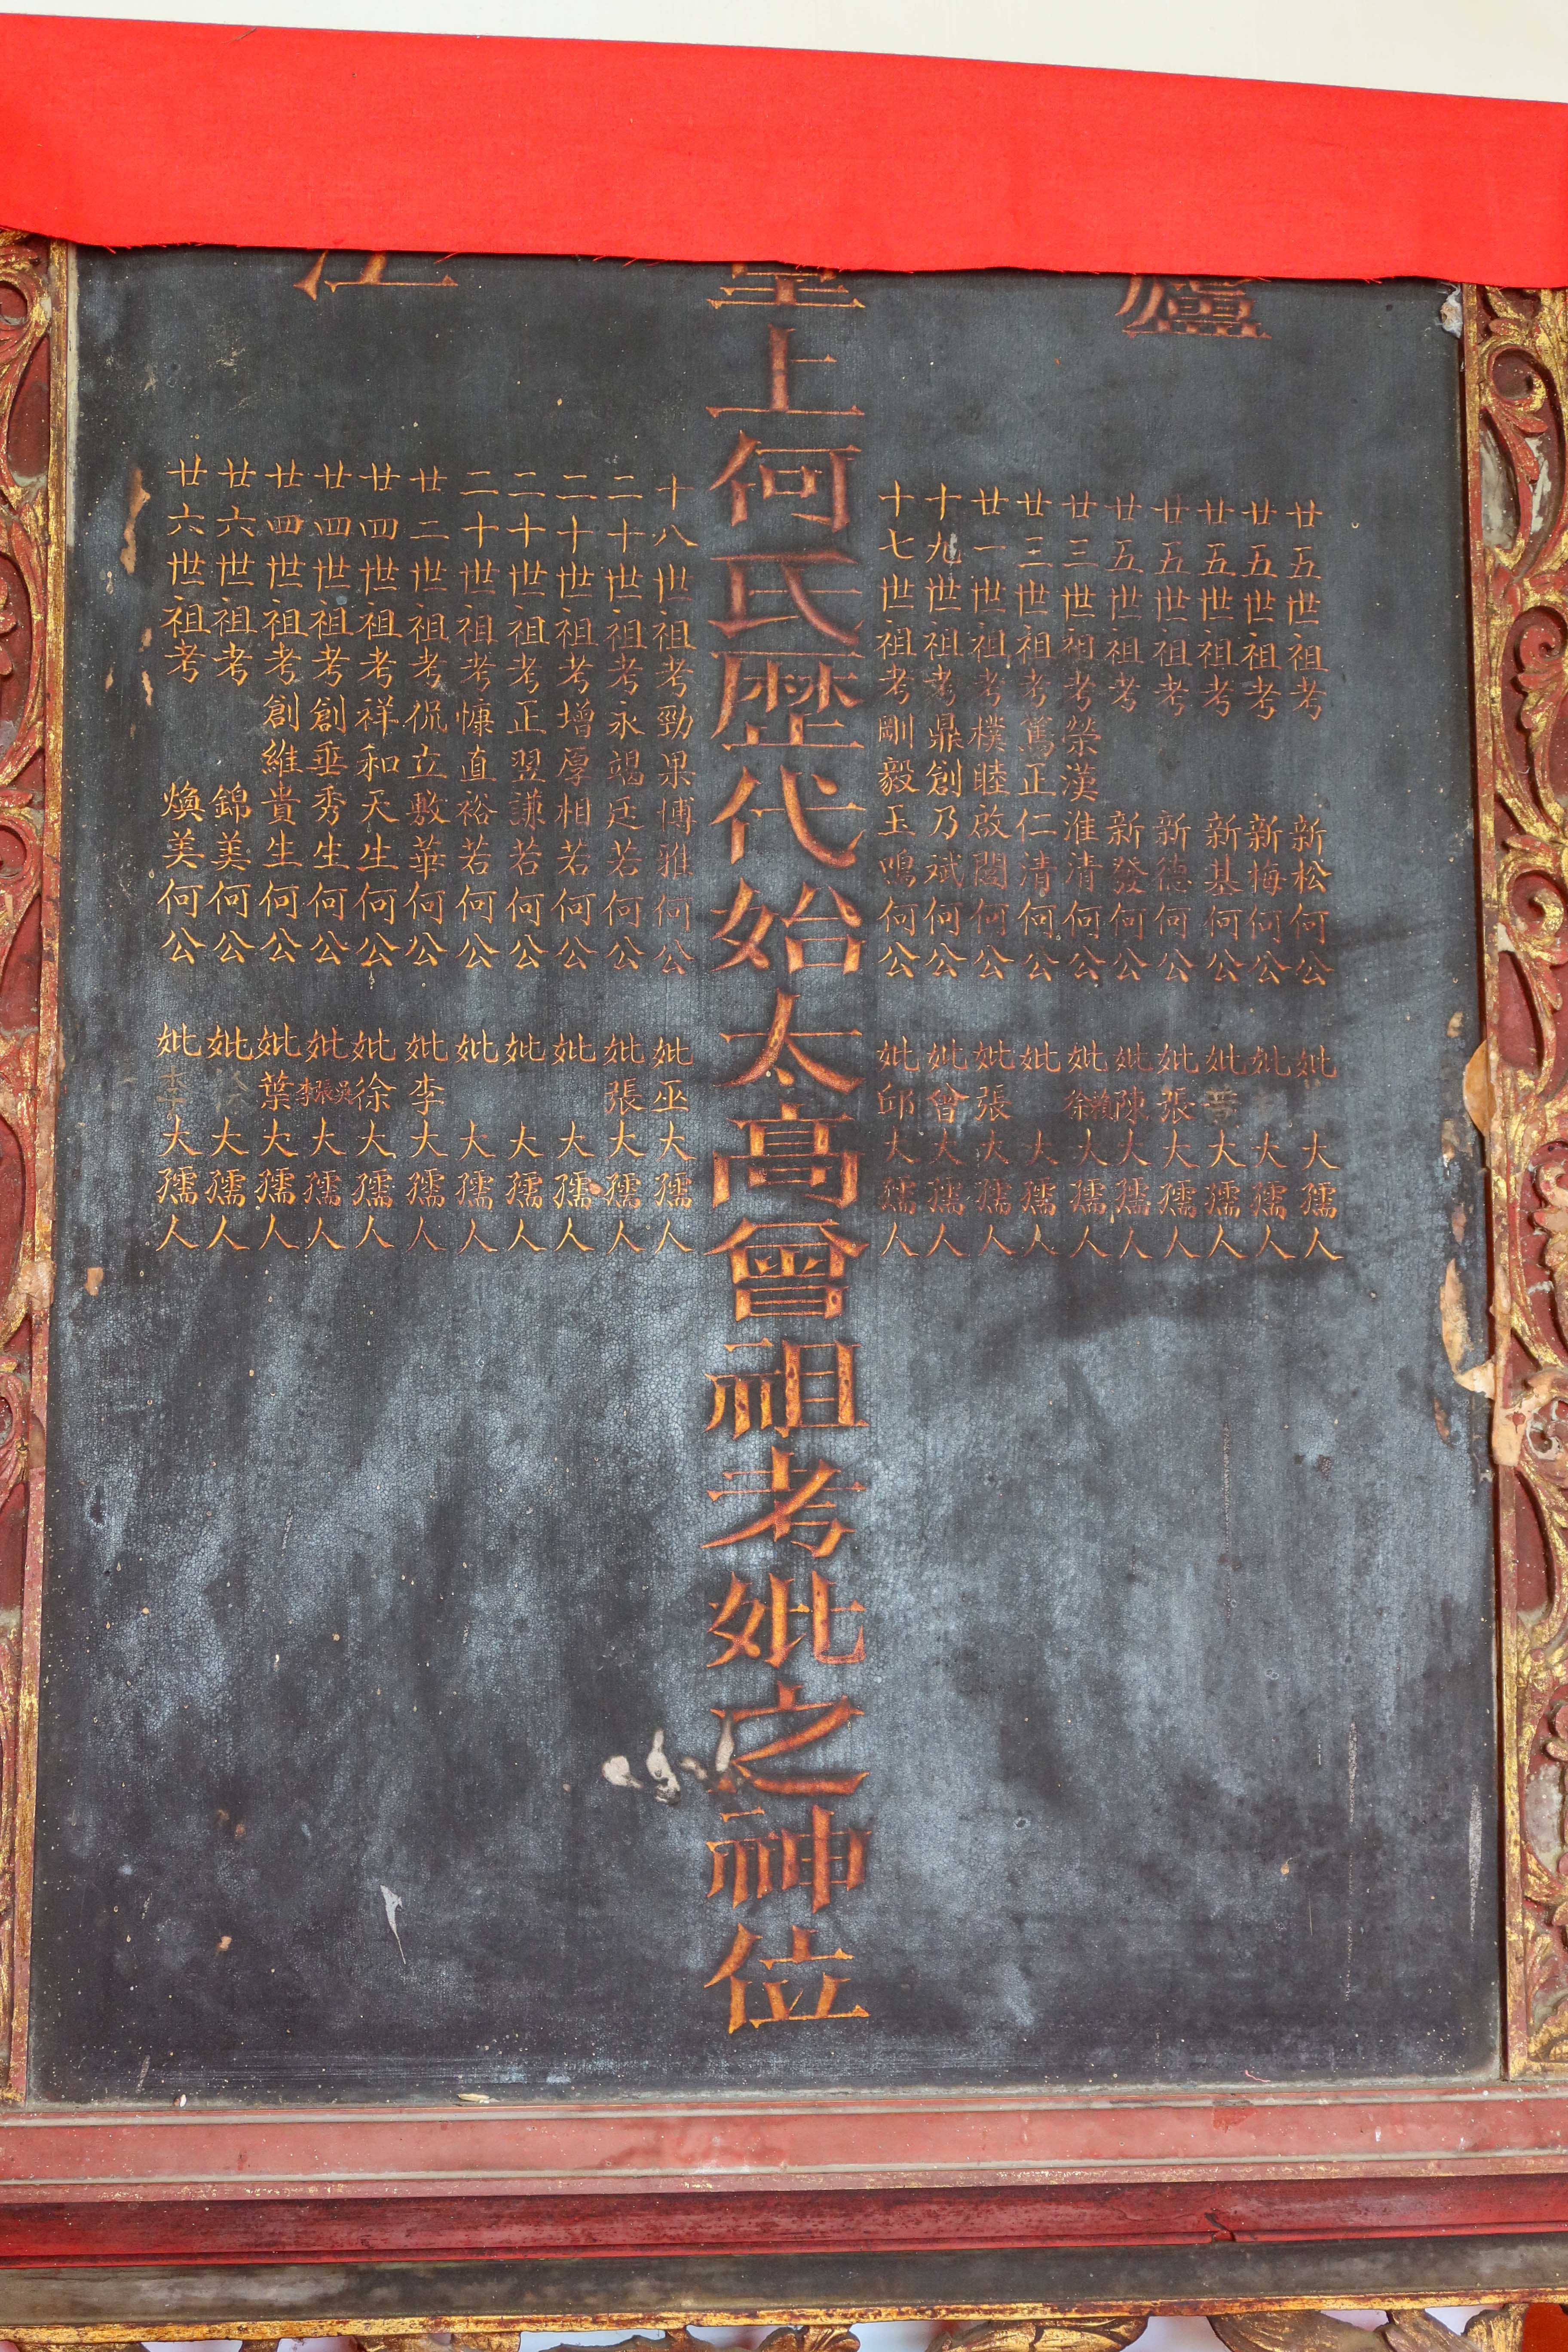 廬
廿五世祖考 新松何公 妣 大孺人
廿五世祖考 新梅何公 妣 大孺人
廿五世祖考 新基何公 妣 大孺人
廿五世祖考 新德何公 妣張大孺人
廿五世祖考 新發何公 妣陳大孺人
廿三世祖考榮漢淮清何公 妣賴徐大孺人
廿三世祖考篤正仁清何公 妣 大孺人
廿一世祖考樸睦啟閣何公 妣張大孺人
十九世祖考鼎創乃斌何公 妣曾大孺人
十七世祖考剛毅玉鳴何公 妣邱大孺人
堂上何氏歷代始太高曾祖考妣之神位
十八世祖考勁果博雅何公 妣巫大孺人
二十世祖考永竭廷若何公 妣張大孺人
二十世祖考增厚相若何公 妣 大孺人
二十世祖考正翌謙若何公 妣 大孺人
二十世祖考慷直裕若何公 妣 大孺人
廿二世祖考侃立敷華何公 妣李大孺人
廿四世祖考祥和天生何公 妣徐大孺人
廿四世祖考創垂秀生何公 妣吳張李大孺人
廿四世祖考創維貴生何公 妣葉大孺人
廿六世祖考 錦美何公 妣 大孺人
廿六世祖考 煥美何公 妣李大孺人
江